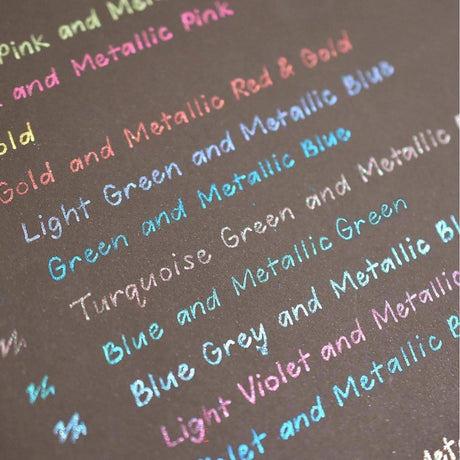 Pink and
and Metallic Pink
Gold and Metallic Red & Gold
Light Green and Metallic Blue
Green and Metallic Blue
Turquoise Green and Metallic
Blue and Metallic Green
Blue Grey and Metallic
Light Violet and Metallic
and Metallic